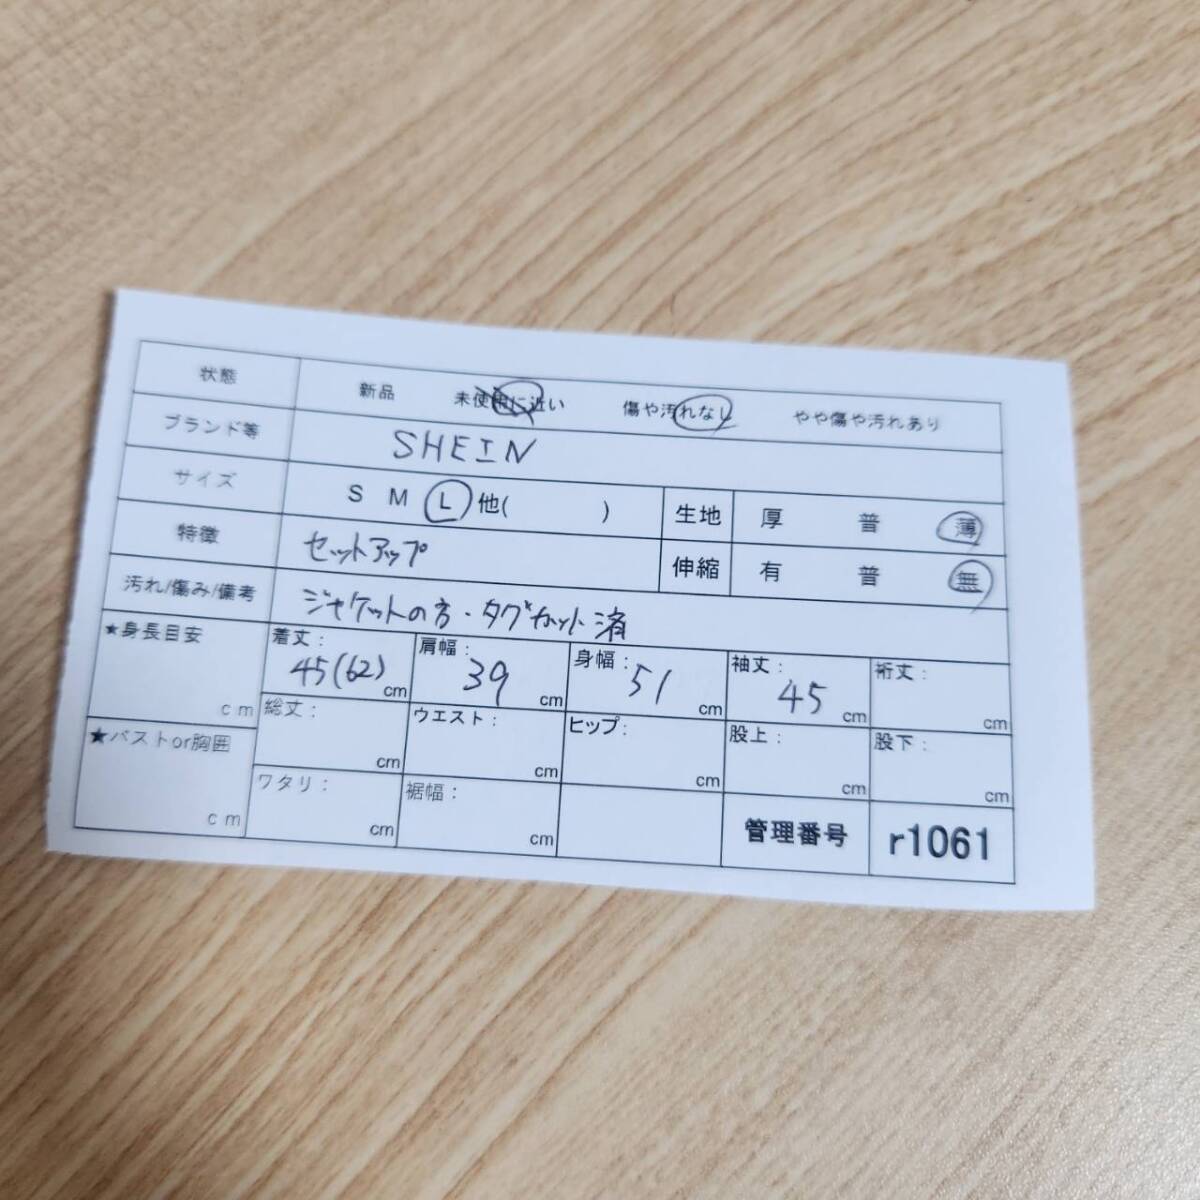 状態 新品 未使用に近い 傷や汚れなし やや傷や汚れあり
ブランド等 SHEIN
サイズ S M L 他( ) 生地 厚 普 薄
特徴 セットアップ 伸縮 有 普 無
汚れ/傷み/備考 ジャケットの方・タグカット済
★身長目安 cm 着丈: 45(62) cm 肩幅: 39 cm 身幅: 51 cm 袖丈: 45 cm 裄丈: cm
★バストor胸囲 cm 総丈: cm ウエスト: cm ヒップ: cm 股上: cm 股下: cm
ワタリ: cm 裾幅: cm 管理番号 r1061